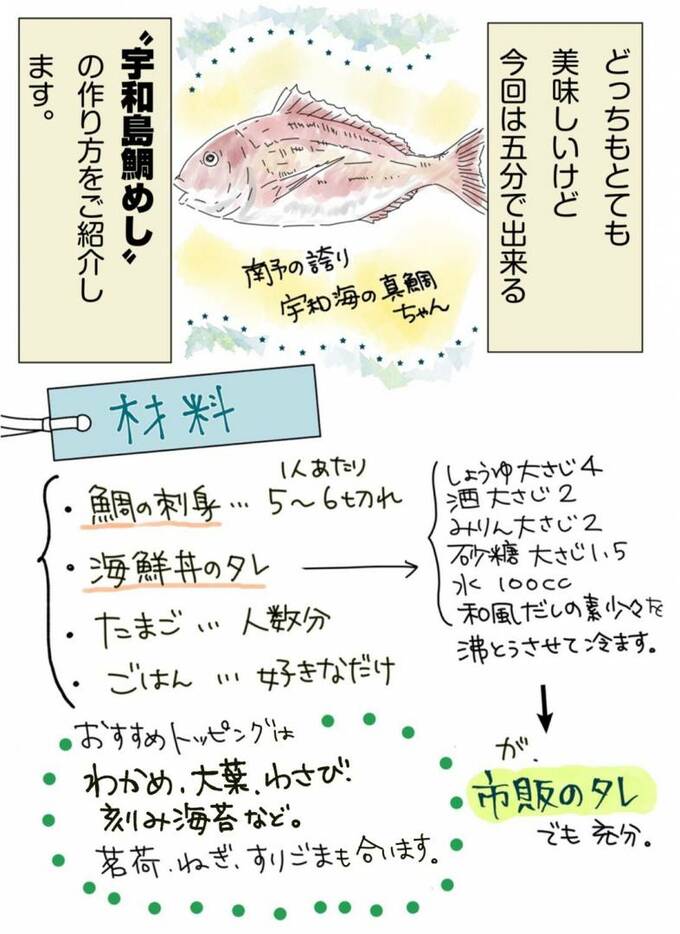 どっちもとても
美味しいけど
今回は五分で出来る
“宇和島鯛めし”
の作り方をご紹介し
ます。
南予の誇り
宇和海の真鯛
ちゃん
材料
・鯛の刺身… 1人あたり
5〜6切れ
・海鮮丼のタレ
・たまご… 人数分
・ごはん… 好きなだけ
しょうゆ大さじ4
酒 大さじ2
みりん大さじ2
砂糖 大さじ1.5
水 100cc
和風だしの素少々を
沸とうさせて冷ます。
が、
市販のタレ
でも 充分。
おすすめトッピングは
わかめ、大葉、わさび、
刻み海苔など。
茗荷、ねぎ、すりごまも合います。